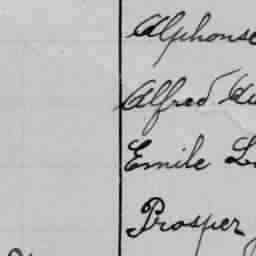 Alphonse
Alfred
Emile
Prosper